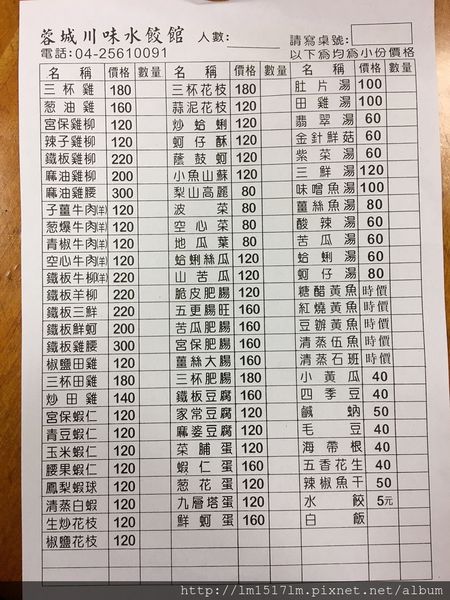 蓉城川味水餃館 人數:
請寫桌號:
電話:04-25610091 以下為均為小份價格
名稱 價格 數量
三杯雞 180
葱油雞 160
宮保雞柳 120
辣子雞柳 120
鐵板雞柳 220
麻油雞柳 200
麻油雞腰 300
子薑牛肉(羊) 120
葱爆牛肉(羊) 120
青椒牛肉(羊) 120
空心牛肉(羊) 120
鐵板牛柳(羊) 220
鐵板羊柳 220
鐵板三鮮 220
鐵板鮮蚵 200
鐵板雞腰 300
椒鹽田雞 120
三杯田雞 180
炒田雞 140
宮保蝦仁 120
青豆蝦仁 120
玉米蝦仁 120
腰果蝦仁 120
鳳梨蝦球 120
清蒸白蝦 120
生炒花枝 120
椒鹽花枝 120
名稱 價格 數量
三杯花枝 180
蒜泥花枝 120
炒蛤蜊 120
蚵仔酥 120
蔭鼓蚵 120
小魚山蘇 120
梨山高麗 80
波菜 80
空心菜 80
地瓜葉 80
蛤蜊絲瓜 120
山苦瓜 120
脆皮肥腸 120
五更腸旺 160
苦瓜肥腸 160
宮保肥腸 160
薑絲大腸 160
三杯肥腸 180
鐵板豆腐 160
家常豆腐 120
麻婆豆腐 120
菜脯蛋 120
蝦仁蛋 160
葱花蛋 120
九層塔蛋 120
鮮蚵蛋 160
名稱 價格 數量
肚片湯 100
田雞湯 100
翡翠湯 60
金針鮮菇 60
紫菜湯 60
三鮮湯 120
味噌魚湯 100
薑絲魚湯 80
酸辣湯 60
苦瓜湯 60
蛤蜊湯 60
蚵仔湯 80
糖醋黃魚 時價
紅燒黃魚 時價
豆瓣黃魚 時價
清蒸伍魚 時價
清蒸石班 時價
小黃瓜 40
四季豆 40
鹹蚋 50
毛豆 40
海帶根 40
五香花生 40
辣椒魚干 50
水餃 5元
白飯
http://lm1517lm.pixnet.net/album